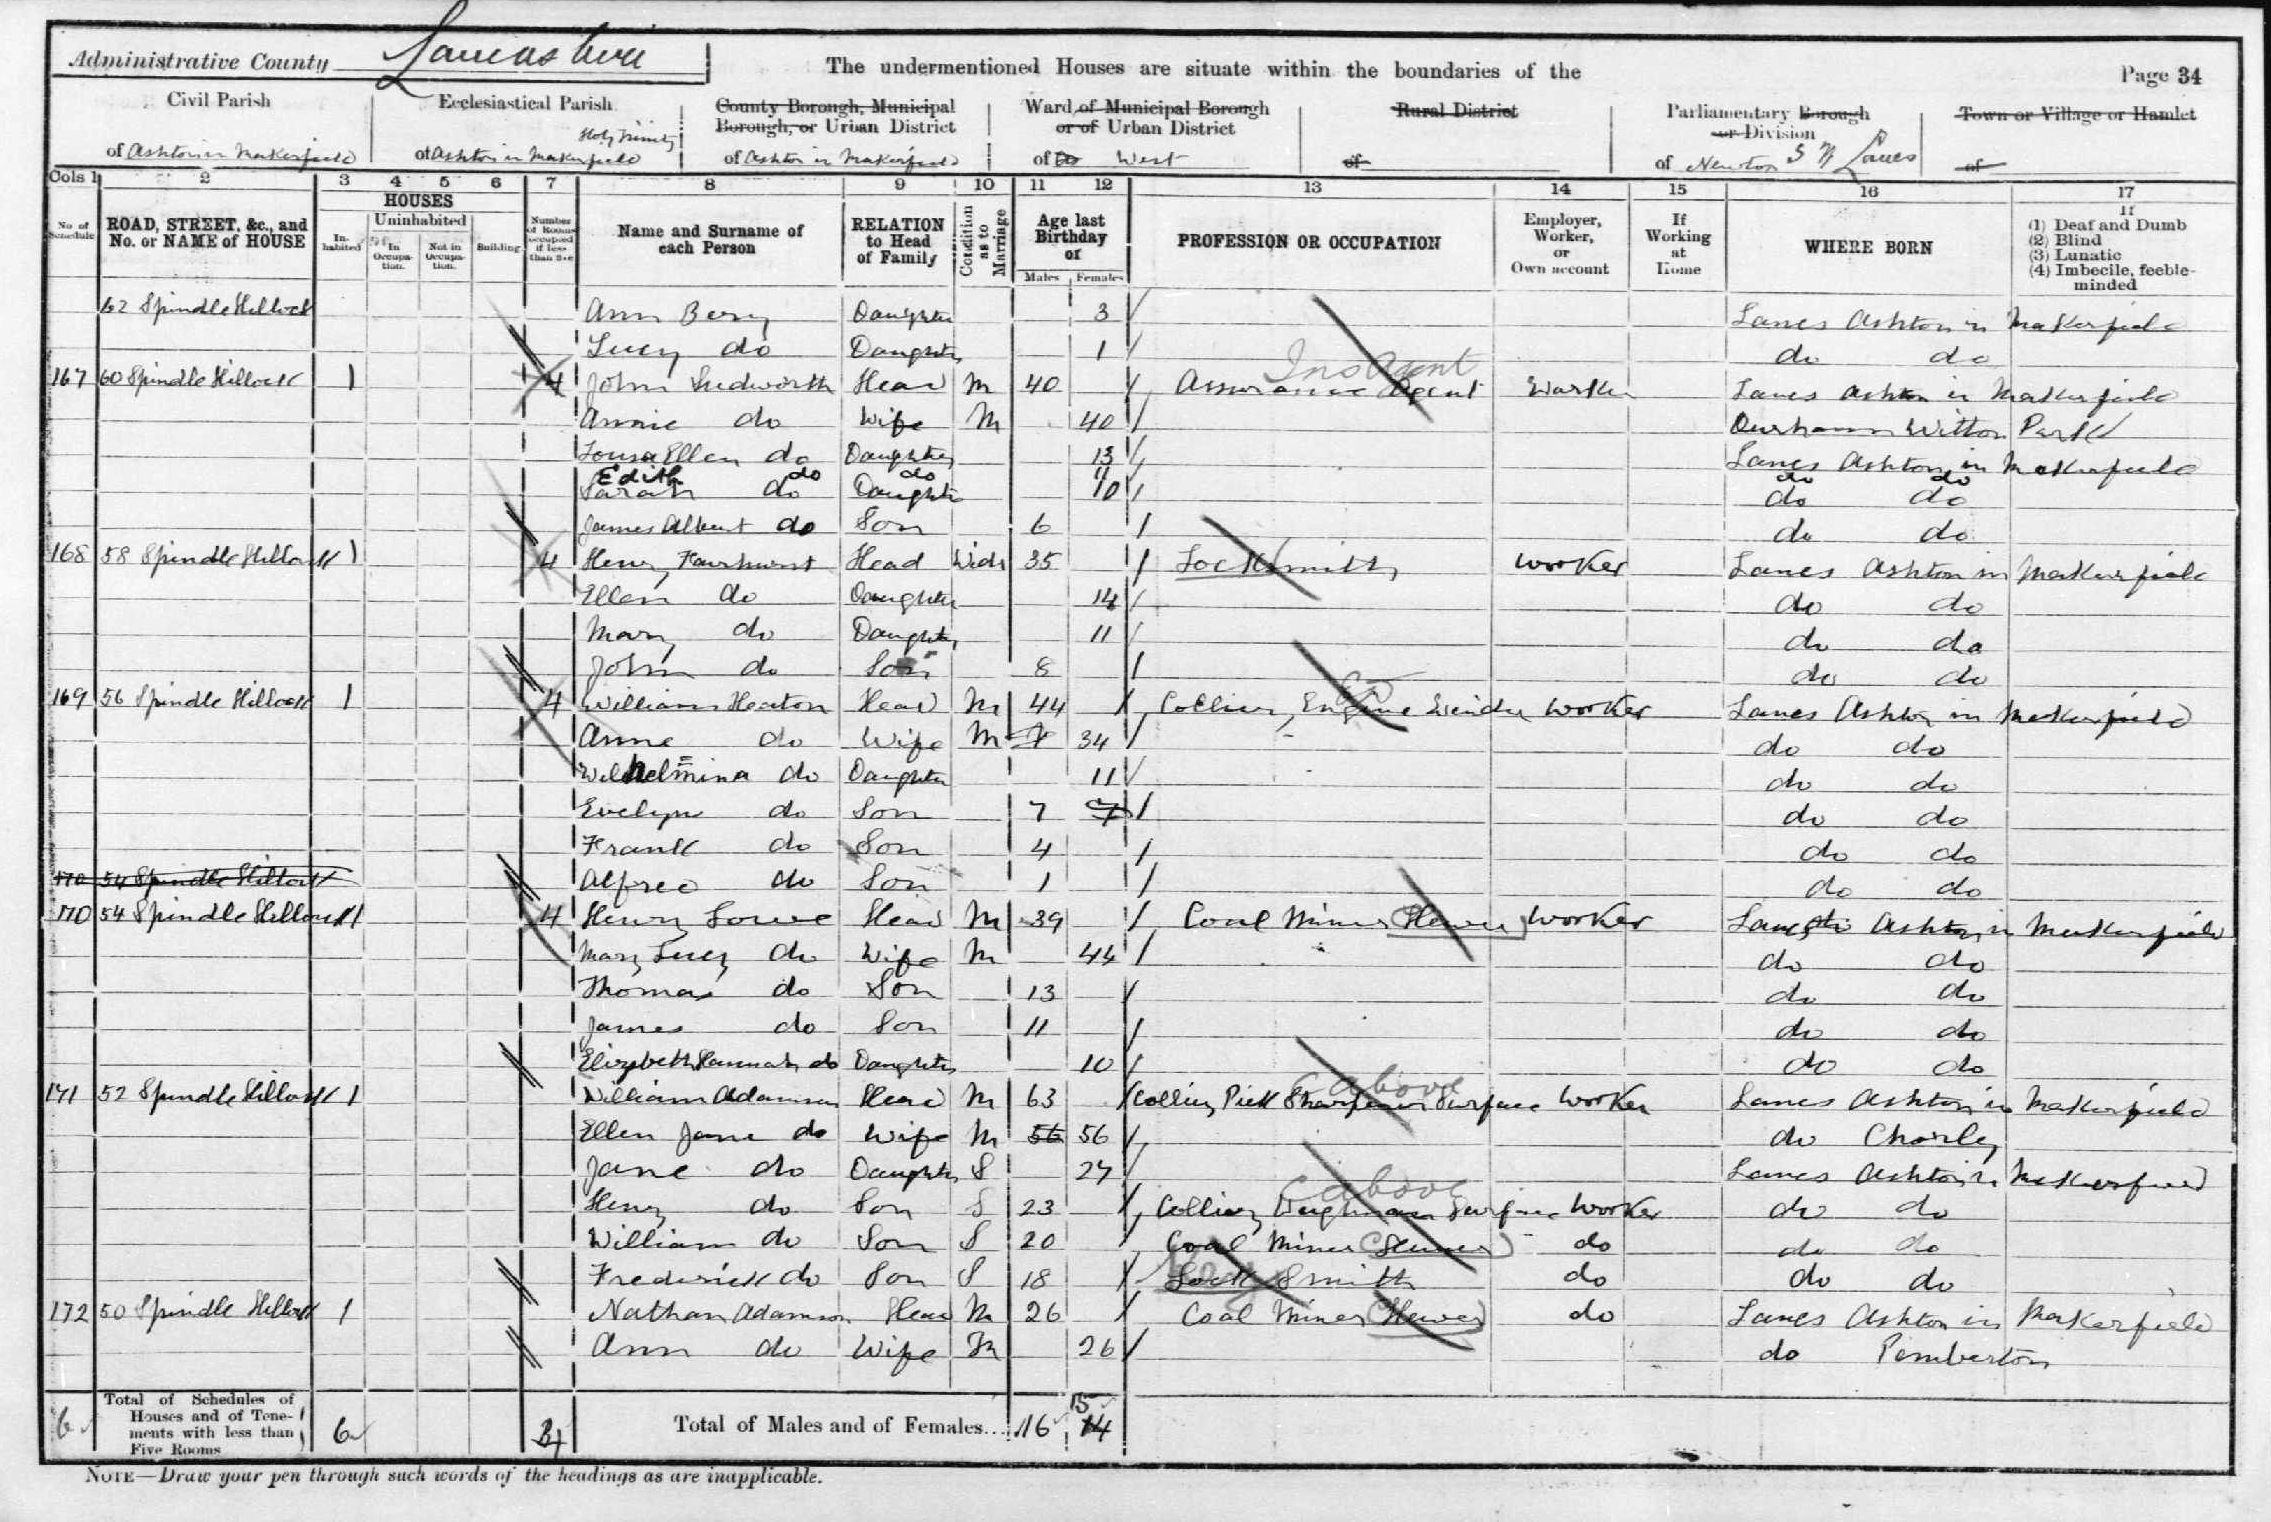 Administrative County Lancashire
The undermentioned Houses are situate within the boundaries of the
Page 34
Civil Parish
of Ashton in Makerfield
Ecclesiastical Parish
Holy Trinity
of Ashton in Makerfield
County Borough, Municipal Borough, or Urban District
of Ashton in Makerfield
Ward of Municipal Borough or of Urban District
of West
Rural District
of
Parliamentary Borough or Division
of Newton S W Lancs
Town or Village or Hamlet
of
Cols 1 2 3 4 5 6 7 8 9 10 11 12 13 14 15 16 17
No of Schedule
ROAD, STREET, &c., and No. or NAME of HOUSE
HOUSES
Inhabited
Uninhabited
In Occupation.
Not in Occupation.
Building
Number of Rooms occupied if less than five
Name and Surname of each Person
RELATION to Head of Family
Condition as to Marriage
Age last Birthday of
Males Females
PROFESSION OR OCCUPATION
Employer, Worker, or Own account
If Working at Home
WHERE BORN
If
(1) Deaf and Dumb
(2) Blind
(3) Lunatic
(4) Imbecile, feeble-minded
62 Spindle Hillock Ann Berry Daughter 3 Lancs Ashton in Makerfield
Lucy do Daughter 1 do do
167 60 Spindle Hillock 1 4 John Ludworth Head M 40 Assurance Agent Worker Lancs Ashton in Makerfield
Annie do Wife M 40 Durham Witton Park
Louisa Ellen do Daughter 13 Lancs Ashton in Makerfield
Edith do do 11 do do
Sarah do Daughter 10 do do
James Albert do Son 6 do do
168 58 Spindle Hillock 1 4 Henry Fairhurst Head Widr 35 Locksmith Worker Lancs Ashton in Makerfield
Ellen do Daughter 14 do do
Mary do Daughter 11 do do
John do Son 8 do do
169 56 Spindle Hillock 1 4 William Heaton Head M 44 Colliery Engine Winder Worker Lancs Ashton in Makerfield
Anne do Wife M 34 do do
Wilhelmina do Daughter 11 do do
Evelyn do Son 7 7 do do
Frank do Son 4 do do
170 54 Spindle Hillock Alfred do Son 1 do do
170 54 Spindle Hillock 1 4 Henry Lowe Head M 39 Coal Miner Hewer Worker Lancs Ashton in Makerfield
Mary Lucy do Wife M 44 do do
Thomas do Son 13 do do
James do Son 11 do do
Elizabeth Hannah do Daughter 10 do do
171 52 Spindle Hillock 1 William Adamson Head M 63 Colliery Pick Sharpener Surface Worker Lancs Ashton in Makerfield
Ellen Jane do Wife M 56 56 do Chorley
Jane do Daughter S 27 Lancs Ashton in Makerfield
Henry do Son S 23 Colliery Weighman Surface Worker do do
William do Son S 20 Coal Miner (Hewer) do do do
Frederick do Son S 18 Lock Smith do do do
172 50 Spindle Hillock 1 Nathan Adamson Head M 26 Coal Miner (Hewer) do Lancs Ashton in Makerfield
Ann do Wife M 26 do Pemberton
6 Total of Schedules of Houses and of Tenements with less than Five Rooms 6 4 Total of Males and of Females... 16 15 14
NOTE—Draw your pen through such words of the headings as are inapplicable.